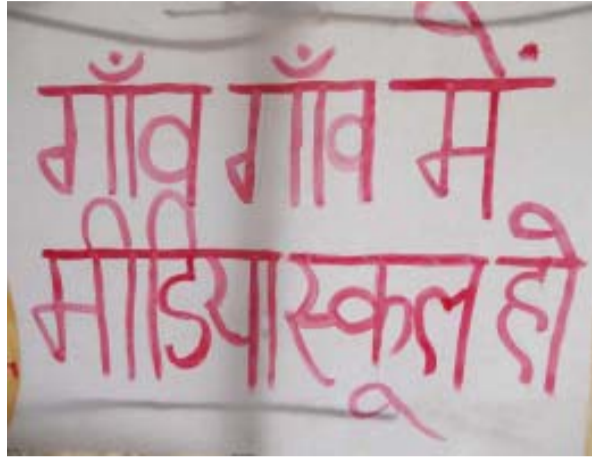 गाँव गाँव में
मीडिया स्कूल हो